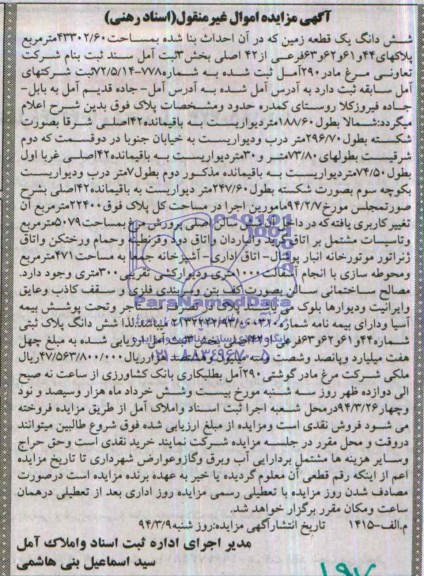 آگهی مزایده اموال غیرمنقول(اسناد رهنی)
شش دانگ یک قطعه زمین که در آن احداث بنا شده بمساحت ۴۳۳۰۲/۶۰مترمربع
پلاکهای۴۴و۶۱و۶۲و۶۳فرعی از۴۲ اصلی بخش۳ثبت آمل سند ثبت بنام شرکت
تعاونی مرغ مادر۲۹۰آمل ثبت شده به شماره۷۷۸-۷۲/۵/۱۴ثبت شرکتهای
آمل سابقه ثبت دارد به آدرس آمل شده به آدرس آمل- جاده قدیم آمل به بابل-
جاده فیروزکلا روستای کمدره حدود ومشخصات پلاک فوق بدین شرح اعلام
میگردد:شمالا بطول۱۸۸/۶۰متردیواریست به باقیمانده۴۲اصلی شرقا بصورت
شکسته بطول۲۹۶/۷۰متر درب ودیواریست به خیابان جنوبا در دوقسمت که دوم
شرقیست بطولهای۷۳/۸۰متر و۳۰متردیواریست به باقیمانده۴۲اصلی غربا اول
بطول۷۴/۵۰متردیواریست به باقیمانده مذکور دوم بطول۷متر درب ودیواریست
بکوچه سوم بصورت شکسته بطول۲۴۷/۶۰متر دیواریست به باقیمانده۴۲اصلی بشرح
صورتمجلس مورخ۹۴/۲/۷مامورین اجرا در مساحت کل پلاک فوق۲۲۴۰۰مترمربع آن
تغییر کاربری یافته که در داخل آن سالن اصلی پرورش مرغ بمساحت۵۰۷۹مترمربع
وتاسیسات مشتمل بر اتاق خرید وانبار دان واتاق دود وقرنطینه وحمام ورختکن واتاق
ژنراتور موتورخانه انبار پوشال- اتاق اداری- آشپزخانه جمعا به مساحت۴۷۱مترمربع
ومحوطه سازی با انجام آسفالت۱۰۰۰متری ودیوارکشی تقریبی۳۰۰متری وجود دارد.
مصالح ساختمانی سالن بصورت کف بتن وسربندی فلزی و سقف کاذب وعایق
وایرانیت ودیوارها بلوک می باشد. پلاک
آسیا ودارای بیمه نامه شماره
شماره۴۴و۶۱و۶۲و۶۳فرعی از۴۲اصلی بخش۳ثبت آمل ارزیابی شده به مبلغ چهل
هفت میلیارد وپانصد وشصت وسه میلیون وهشتصد هزارریال۴۷/۵۶۳/۸۰۰/۰۰۰ریال
ملکی شرکت مرغ مادر گوشتی۲۹۰آمل بطلبکاری بانک کشاورزی از ساعت نه صبح
الی دوازده ظهر روز سه شنبه مورخ بیست وشش خرداد ماه هزار وسیصد و نود
وچهار۹۴/۳/۲۶درمحل شعبه اجرا ثبت اسناد واملاک آمل از طریق مزایده فروخته
می شود فروش نقدی است ومزایده از مبلغ ارزیابی شده فوق شروع طالبین میتوانند
دروقت و محل مقرر در جلسه مزایده شرکت نمایند خرید نقدی است وحق حراج
وسایر هزینه ها مشتمل بردارایی آب وبرق وگازوعوارض شهرداری تا تاریخ مزایده
اعم از اینکه رقم قطعی آن معلوم گردیده یا خیر به عهده برنده مزایده است درصورت
مصادف شدن روز مزایده با تعطیلی رسمی مزایده روز اداری بعد از تعطیلی درهمان
ساعت ومکان مقرر برگزار خواهد شد.
م.الف-۱۴۱۵ تاریخ انتشارآگهی مزایده:روز شنبه۹۴/۳/۹
مدیر اجرای اداره ثبت اسناد واملاک آمل
سید اسماعیل بنی هاشمی
۱۹۷